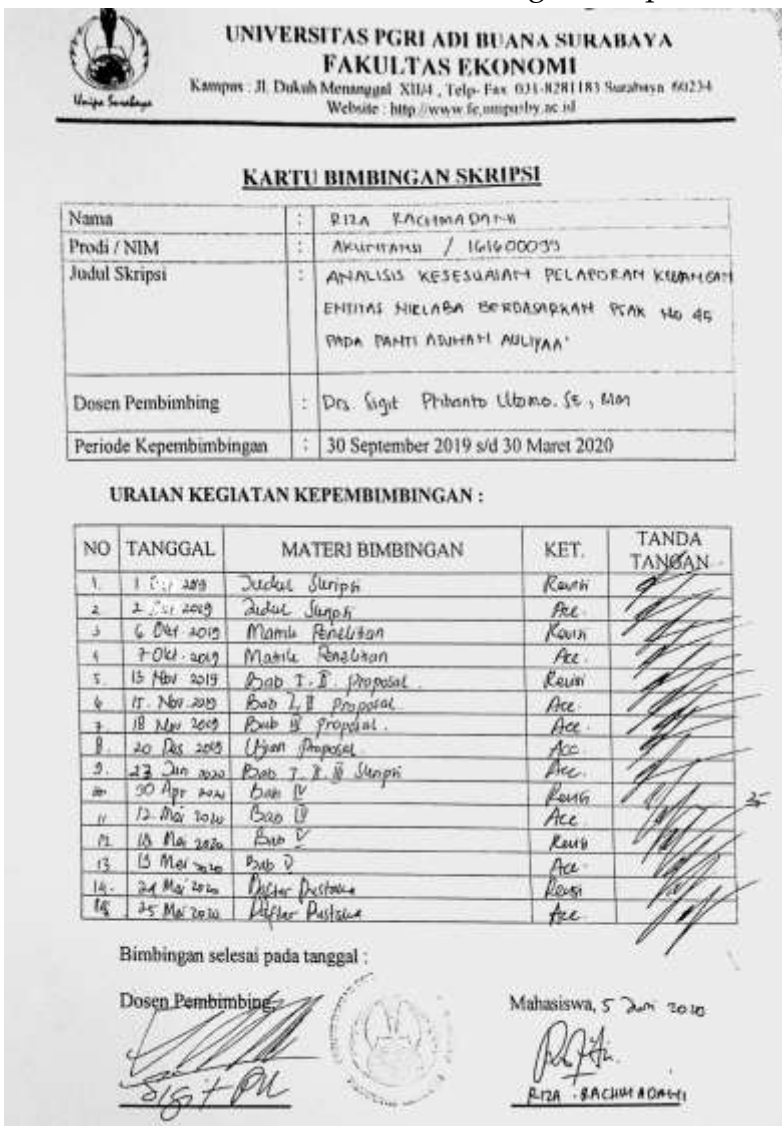 UNIVERSITAS PGRI ADI BUANA SURABAYA
FAKULTAS EKONOMI
Kampus : Jl. Dukuh Menanggal XII/4 , Telp- Fax 031-8281183 Surabaya 60234
Website : http://www.fe.unipasby.ac.id
Unipa Surabaya
KARTU BIMBINGAN SKRIPSI
Nama : RIZA RACHMADANI
Prodi / NIM : AKUNTANSI / 161600039
Judul Skripsi : ANALISIS KESESUAIAN PELAPORAN KEUANGAN
ENTITAS NIRLABA BERDASARKAN PSAK No 45
PADA PANTI ASUHAN AULIYAA'
Dosen Pembimbing : Drs. Sigit Prihanto Utomo. SE, MM
Periode Kepembimbingan : 30 September 2019 s/d 30 Maret 2020
URAIAN KEGIATAN KEPEMBIMBINGAN :
NO TANGGAL MATERI BIMBINGAN KET. TANDA TANGAN
1. 1 2019 Judul Skripsi Revisi
2 2 2019 Judul Skripsi Acc.
3 6 Okt 2019 Penelitian Revisi
4 7 Okt. 2019 Matrik Penelitian Acc.
5. 13 Nov 2019 Bab I. II Proposal. Revisi
6 15. Nov. 2019 Bab I, II Proposal Acc.
7 18 Nov 2019 Bab III Proposal. Acc.
8. 20 Des 2019 Ujian Proposal Acc.
9. 23 Jan 2020 Bab I. II. III Skripsi Acc.
10 30 Apr 2020 Bab IV Revisi
11 12 Mei 2020 Bab IV Acc
12 18 Mei 2020 Bab V Revisi
13 19 Mei 2020 Bab V Acc.
14. 24 Mei 2020 Daftar Pustaka Revisi
15 25 Mei 2020 Daftar Pustaka Acc.
Bimbingan selesai pada tanggal :
Dosen Pembimbing, Mahasiswa, 5 Juni 2020
Sigit PU
RIZA RACHMADANI